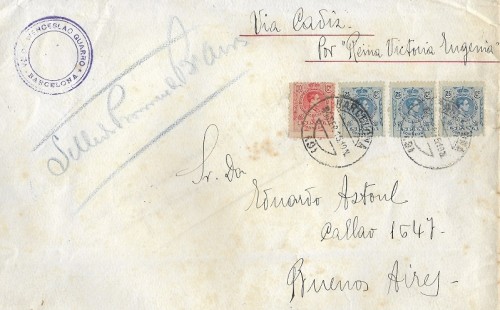 Via Cadiz.
Por "Reina Victoria Eugenia"
WENCESLAO GUARRO
BARCELONA
BARCELONA
Sr. Dn
Eduardo Astoul
Callao 1547.
Buenos Aires.